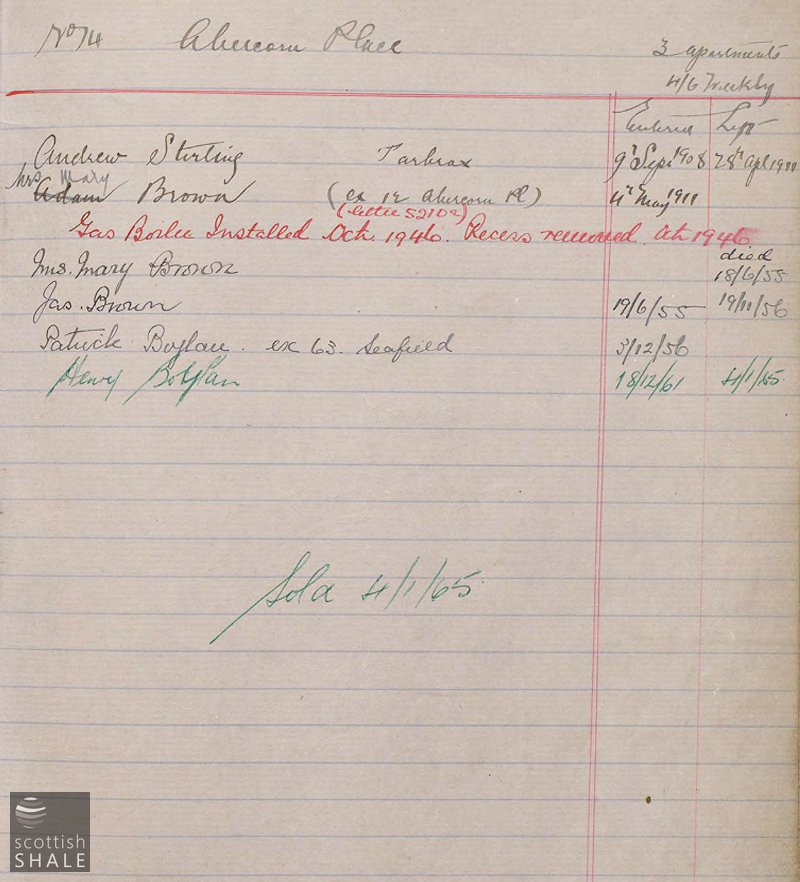 No 14 Abercorn Place 3 apartments
4/6 Weekly
Entered Left
Andrew Stirling Tarbrax 9th Sept 1908 28th Apl 1911
Mrs Mary
Adam Brown (ex 12 Abercorn Pl) 4th May 1911
(letter 5210a)
Gas Boiler Installed Oct. 1946. Recess removed Oct 1946
died
Mrs. Mary Brown 18/6/55
Jas. Brown 19/6/55 19/11/56
Patrick Boylan. ex 63. Seafield 3/12/56
Henry Boylan 18/12/61 4/1/65.
Sold 4/1/65
scottish
SHALE